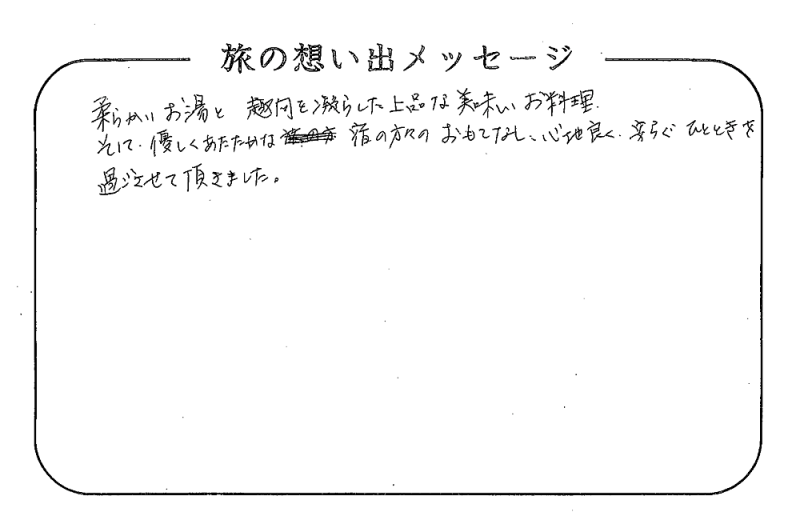 旅の想い出メッセージ
柔らかいお湯と 趣向を凝らした上品な美味いお料理.
そして. 優しくあたたかな 宿の方々の おもてなし、心地良く. 安らぐ ひとときを
過ごせて頂きました。